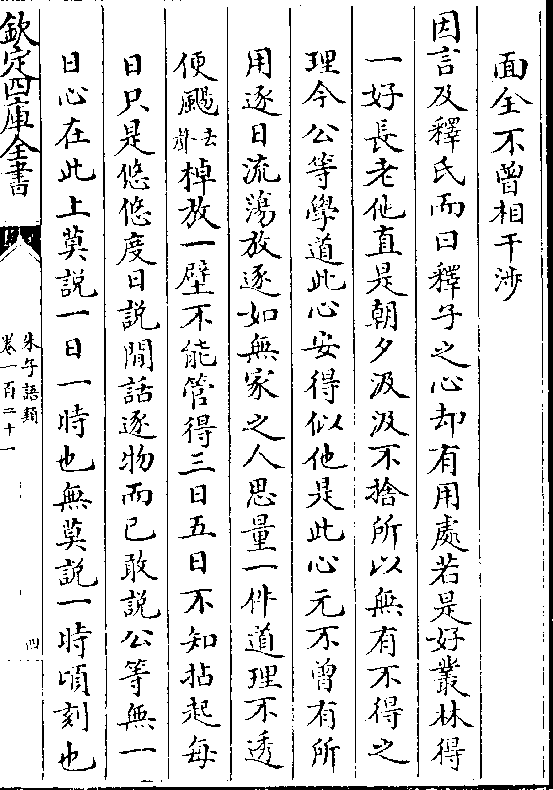 面全不曾相干涉
因言及釋氏而曰釋子之心却有用處若是好叢林得
一好長老他直是朝夕汲汲不捨所以無有不得之
理今公等學道此心安得似他是此心元不曾有所
用逐日流蕩放逐如無家之人思量一件道理不透
便颺去聲棹放一壁不能管得三日五日不知拈起每
日只是悠悠度日說閒話逐物而已敢說公等無一
日心在此上莫說一日一時也無莫說一時頃刻也
欽定四庫全書
朱子語類
卷一百二十一
四